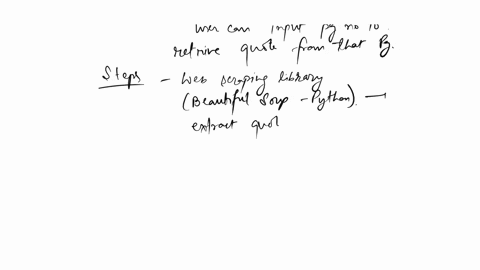 user can input pg no to
retrive quote from that Pg.
Steps - Web scraping library
(Beautiful Soup - Python). →
extract quot